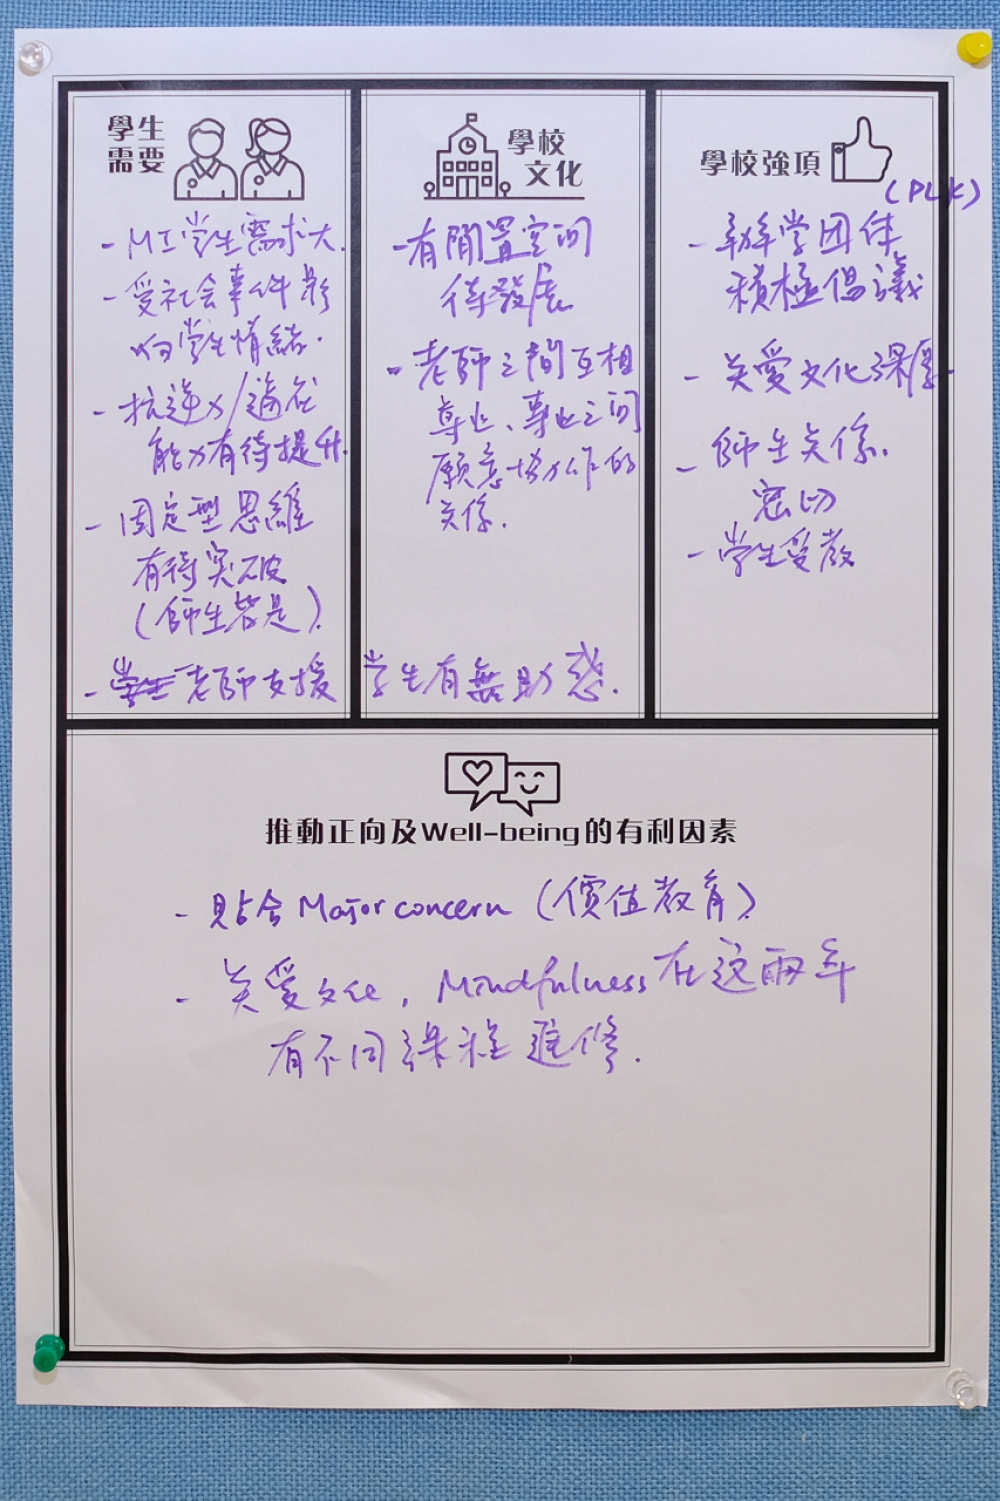 學生
需要
- MI學生需求大.
- 受社会事件影
响学生情緒.
- 抗逆力/適应
能力有待提升.
- 固定型思維
有待突破
(師生皆是).
- 老師支援 学生有無助感.
學校
文化
- 有閒置空间
待發展
- 老師之間互相
專业、專业之间
願意协作的
关係.
學校強項
(PLK)
- 辦学团体
積極倡議
- 关愛文化深厚.
- 師生关係.
密切
- 学生受教
推動正向及Well-being的有利因素
- 貼合Major concern (價值教育)
- 关愛文化, Mindfulness在这兩年
有不同課程進修.